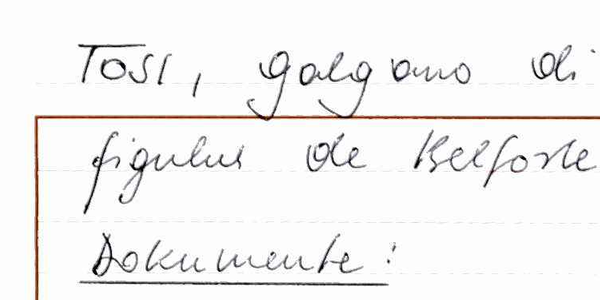 Tosi, Galgano di
figulus de Belforte
Dokumente: